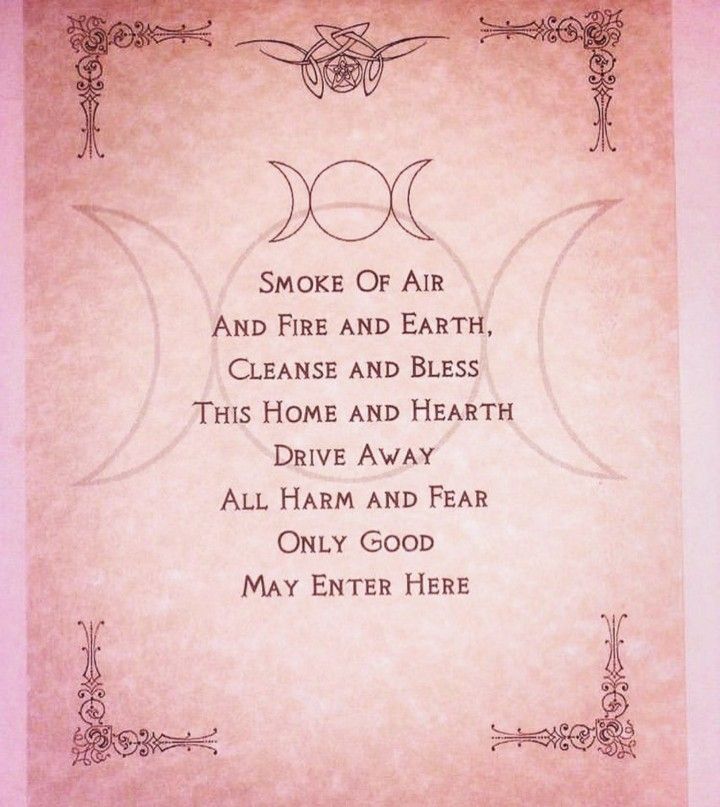 Smoke Of Air
And Fire and Earth,
Cleanse and Bless
This Home and Hearth
Drive Away
All Harm and Fear
Only Good
May Enter Here